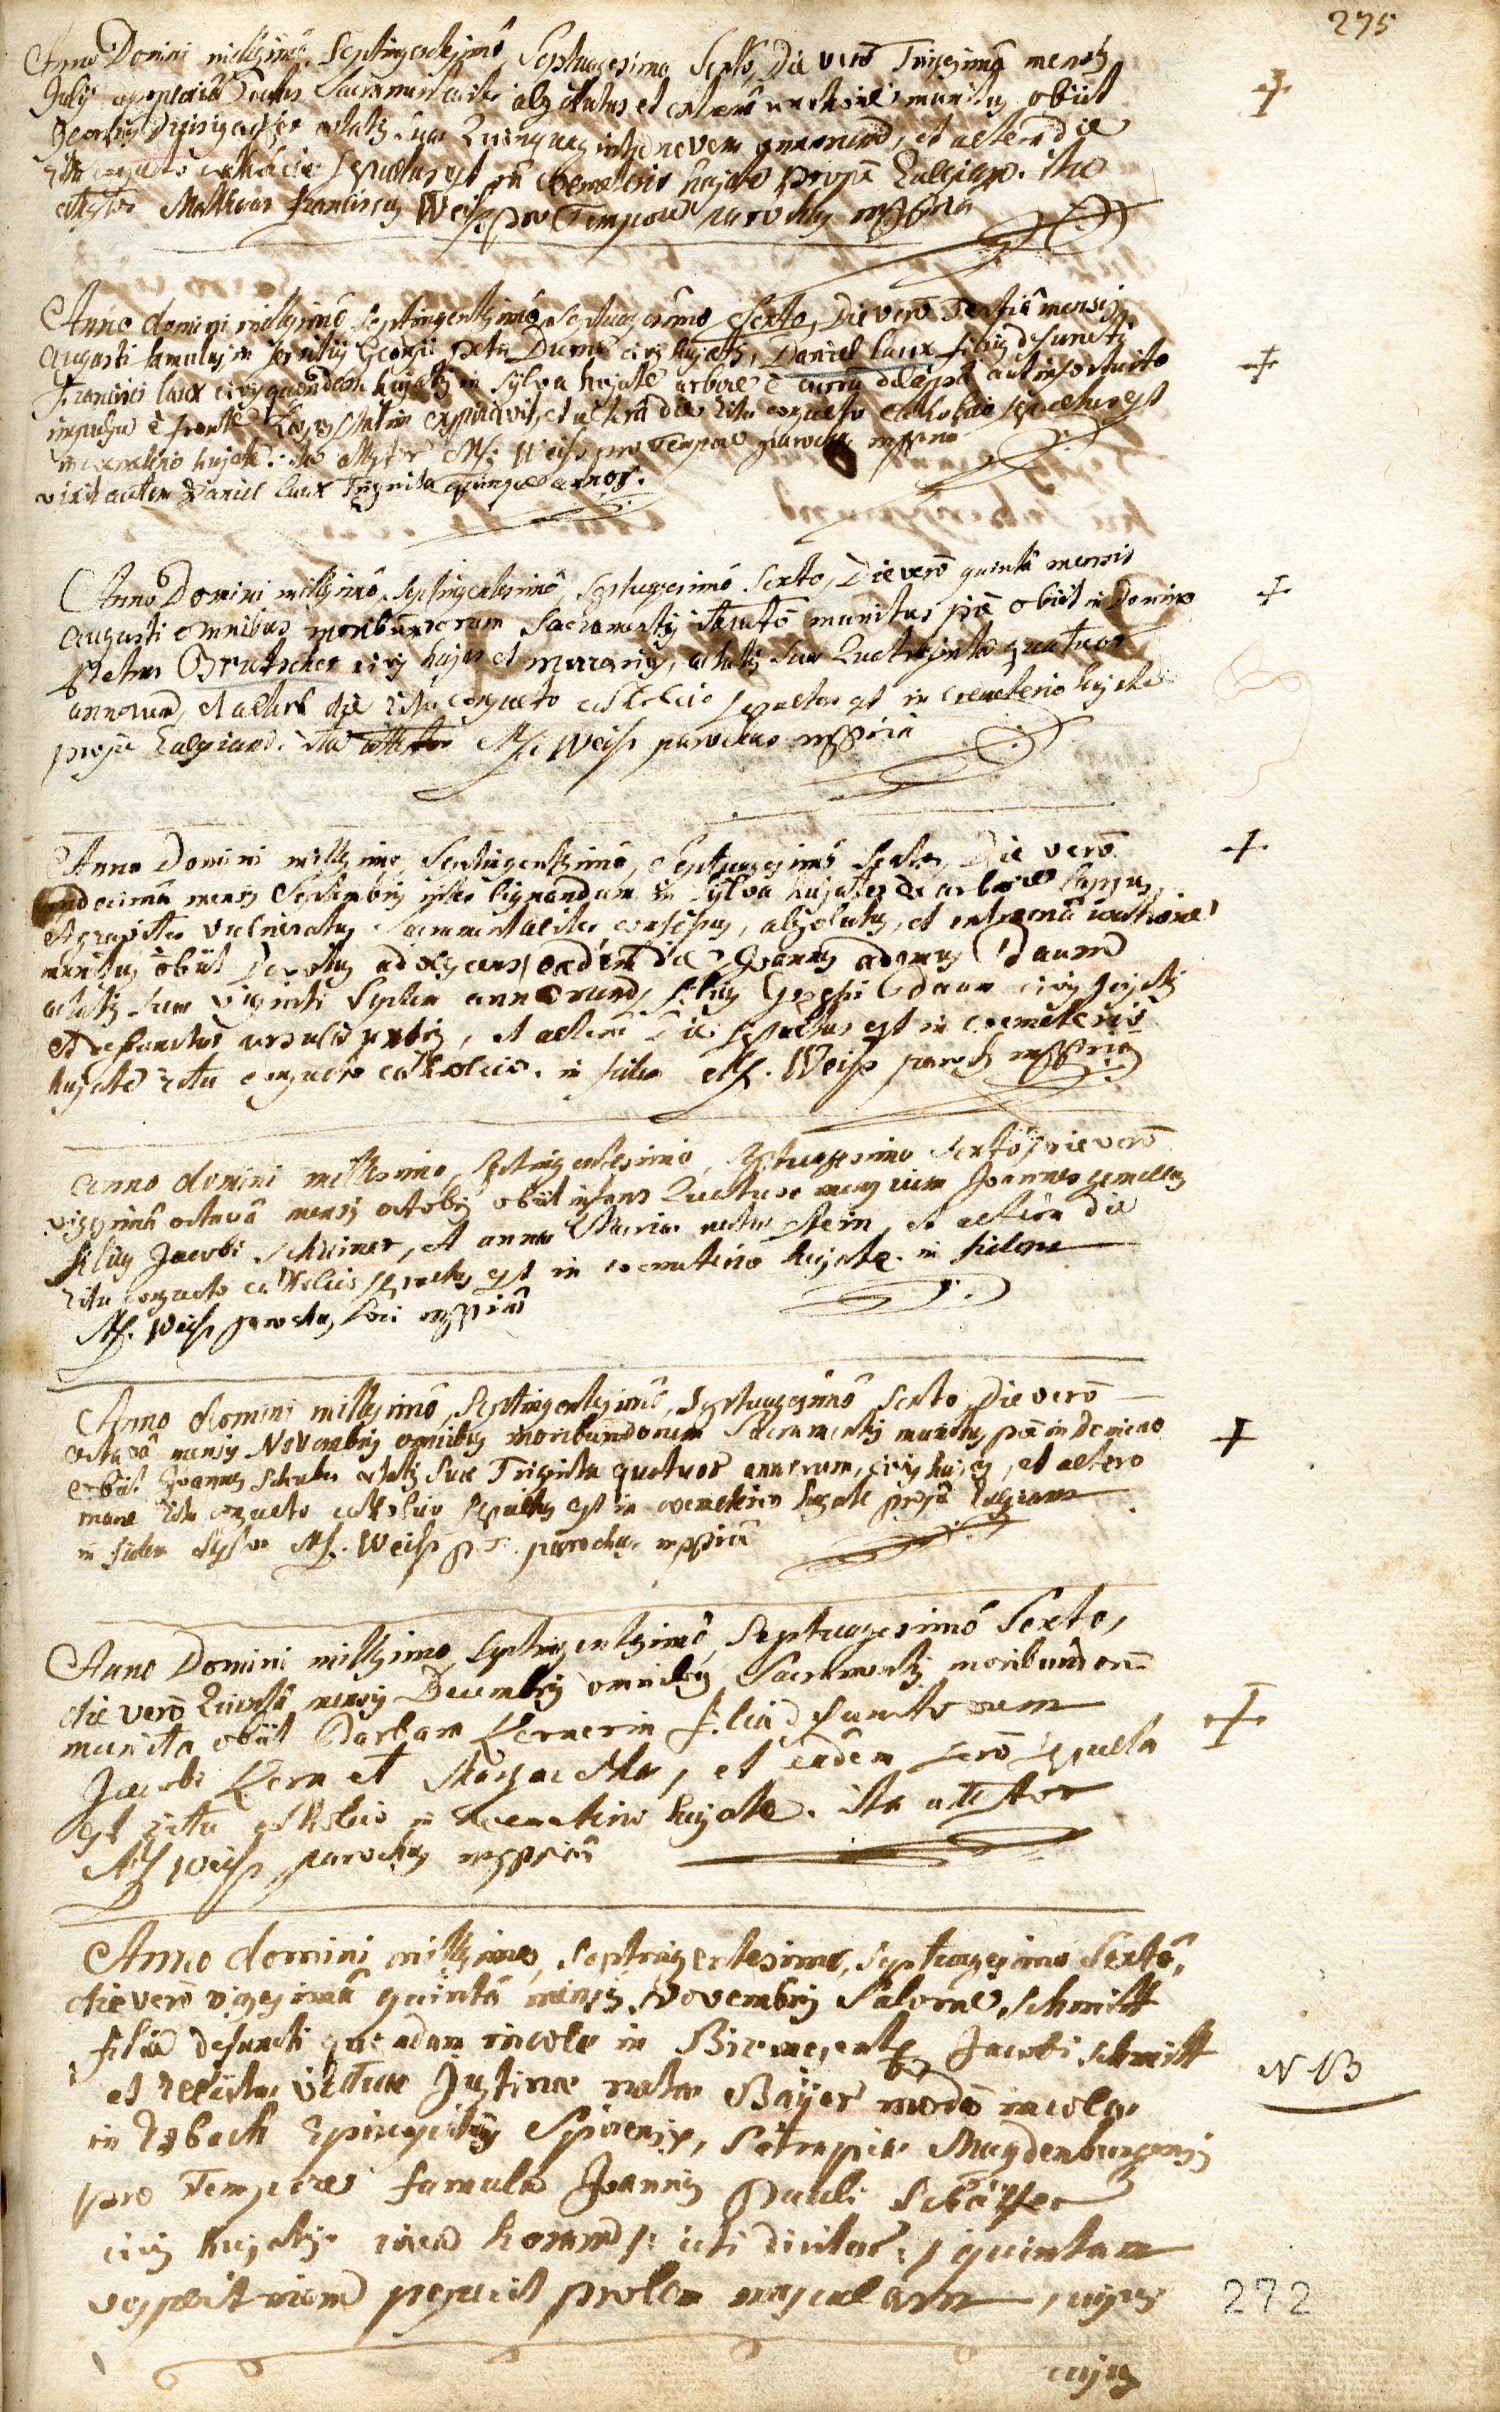 275
Anno Domini millesimô, Septingentesimô, Septuagesimo Sexto, Die verò Trigesimâ mensis
Julij apoplexiâ Tactus Sacramentaliter absolutus et extremâ unctione munitus obiit
Georgius aetatis suae Quinquaginta novem annorum, et alterâ die
ritu consueto catholico Sepultus est in coemeterio hujate propè Ecclesiam. ita
attestor Mathias Franciscus Weiss pro Tempore parochus mppria
Anno domini millesimô Septingentesimô, Septuagesimô Sexto, Die verò Tertiâ mensis
Augusti famulus in servitiis Georgii Petri Dum civis hujatis, Daniel Laux filius defuncti
Francisci Laux civis quondam hujatis in sylva hujate arbore è curru delapsâ aut infortunito
impulsu è fronte statim expiravit, et alterâ die ritu consueto catholico sepultus est
in coemeterio hujate. ita attestor M: Weiss pro Tempore parochus mppria
vixit autem Daniel Laux Triginta quinque annos.
Anno Domini millesimô, Septingentesimô, Septuagesimô Sexto, Die verò quintâ mensis
Augusti omnibus moribundorum Sacramentis munitus piè obiit in Domino
Petrus Brutscher civis hujas et murarius, aetatis suae Quadraginta quatuor
annorum, et alterâ die ritu consueto catholico sepultus est in coemeterio hujate
propè Ecclesiam. ita attestor M: Weiss parochus mppria
Anno Domini millesimo, Septingentesimô, Septuagesimô Sexto, Die verò
undecimâ mensis Septembris lignandum in Sylva hujate de arbore lapsus,
et graviter vulneratus Sacramentaliter confessus, absolutus, et extremâ unctione
munitus obiit eâdem die Joannes adamus Daum
aetatis suae viginti Septem annorum, filius Josephi Daum civis hujatis
et defunctae, et alterâ Die sepultus est in coemeterio
hujate ritu consueto catholico. in fidem M. Weiss paroch mppria
anno domini millesimo, Septingentesimo, Septuagesimo Sexto, Die verò
vigesimâ octavâ mensis octobris obiit infans Quatuor mensium Joannes gemellus
filius Jacobi Schreiner, et annae Mariae natae Stein, et alterâ die
ritu consueto catholico sepultus est in coemeterio hujate. in fidem
M. Weiss parochus Loci mppria
Anno domini millesimô, Septingentesimô, Septuagesimô Sexto, Die verò
octavâ mensis Novembris omnibus moribundorum Sacramentis munitus piè in domino
obiit Joannes aetatis Suae Triginta quatuor annorum, civis hujas, et altero
mane ritu consueto catholico Sepultus est in coemeterio hujate propè Ecclesiam
in fidem M. Weiss p T. parochus mppriâ
Anno Domini millesimo, Septingentesimô, Septuagesimô Sexto,
die verò Quintâ mensis Decembris omnibus Sacramentis moribundorū
munita obiit Barbara Kernerin filia defunctorum
Jacobi Kern et Margarethae, et eâdem serò sepulta
est ritu catholico in coemeterio hujate. ita attestor
M Weiss parochus mppriâ
Anno domini millesimo, Septingentesimo, Septuagesimo Sextô,
die verò vigesimâ quintâ mensis Novembris Salome Schmitt
filia defuncti quondam incolae in Jacobi Schmitt
et relictae viduae Justinae natae Bayer modò incolae
in Esbach Episcopatûs Spirensis, Satrapiae Magdenburgensis
pro Tempore famula Joannis Pauli Schäffer
civis hujatis circa horam /: uti dicitur :/ quintam
vespertinam peperit prolem masculam, cujus
cujus
NB
272